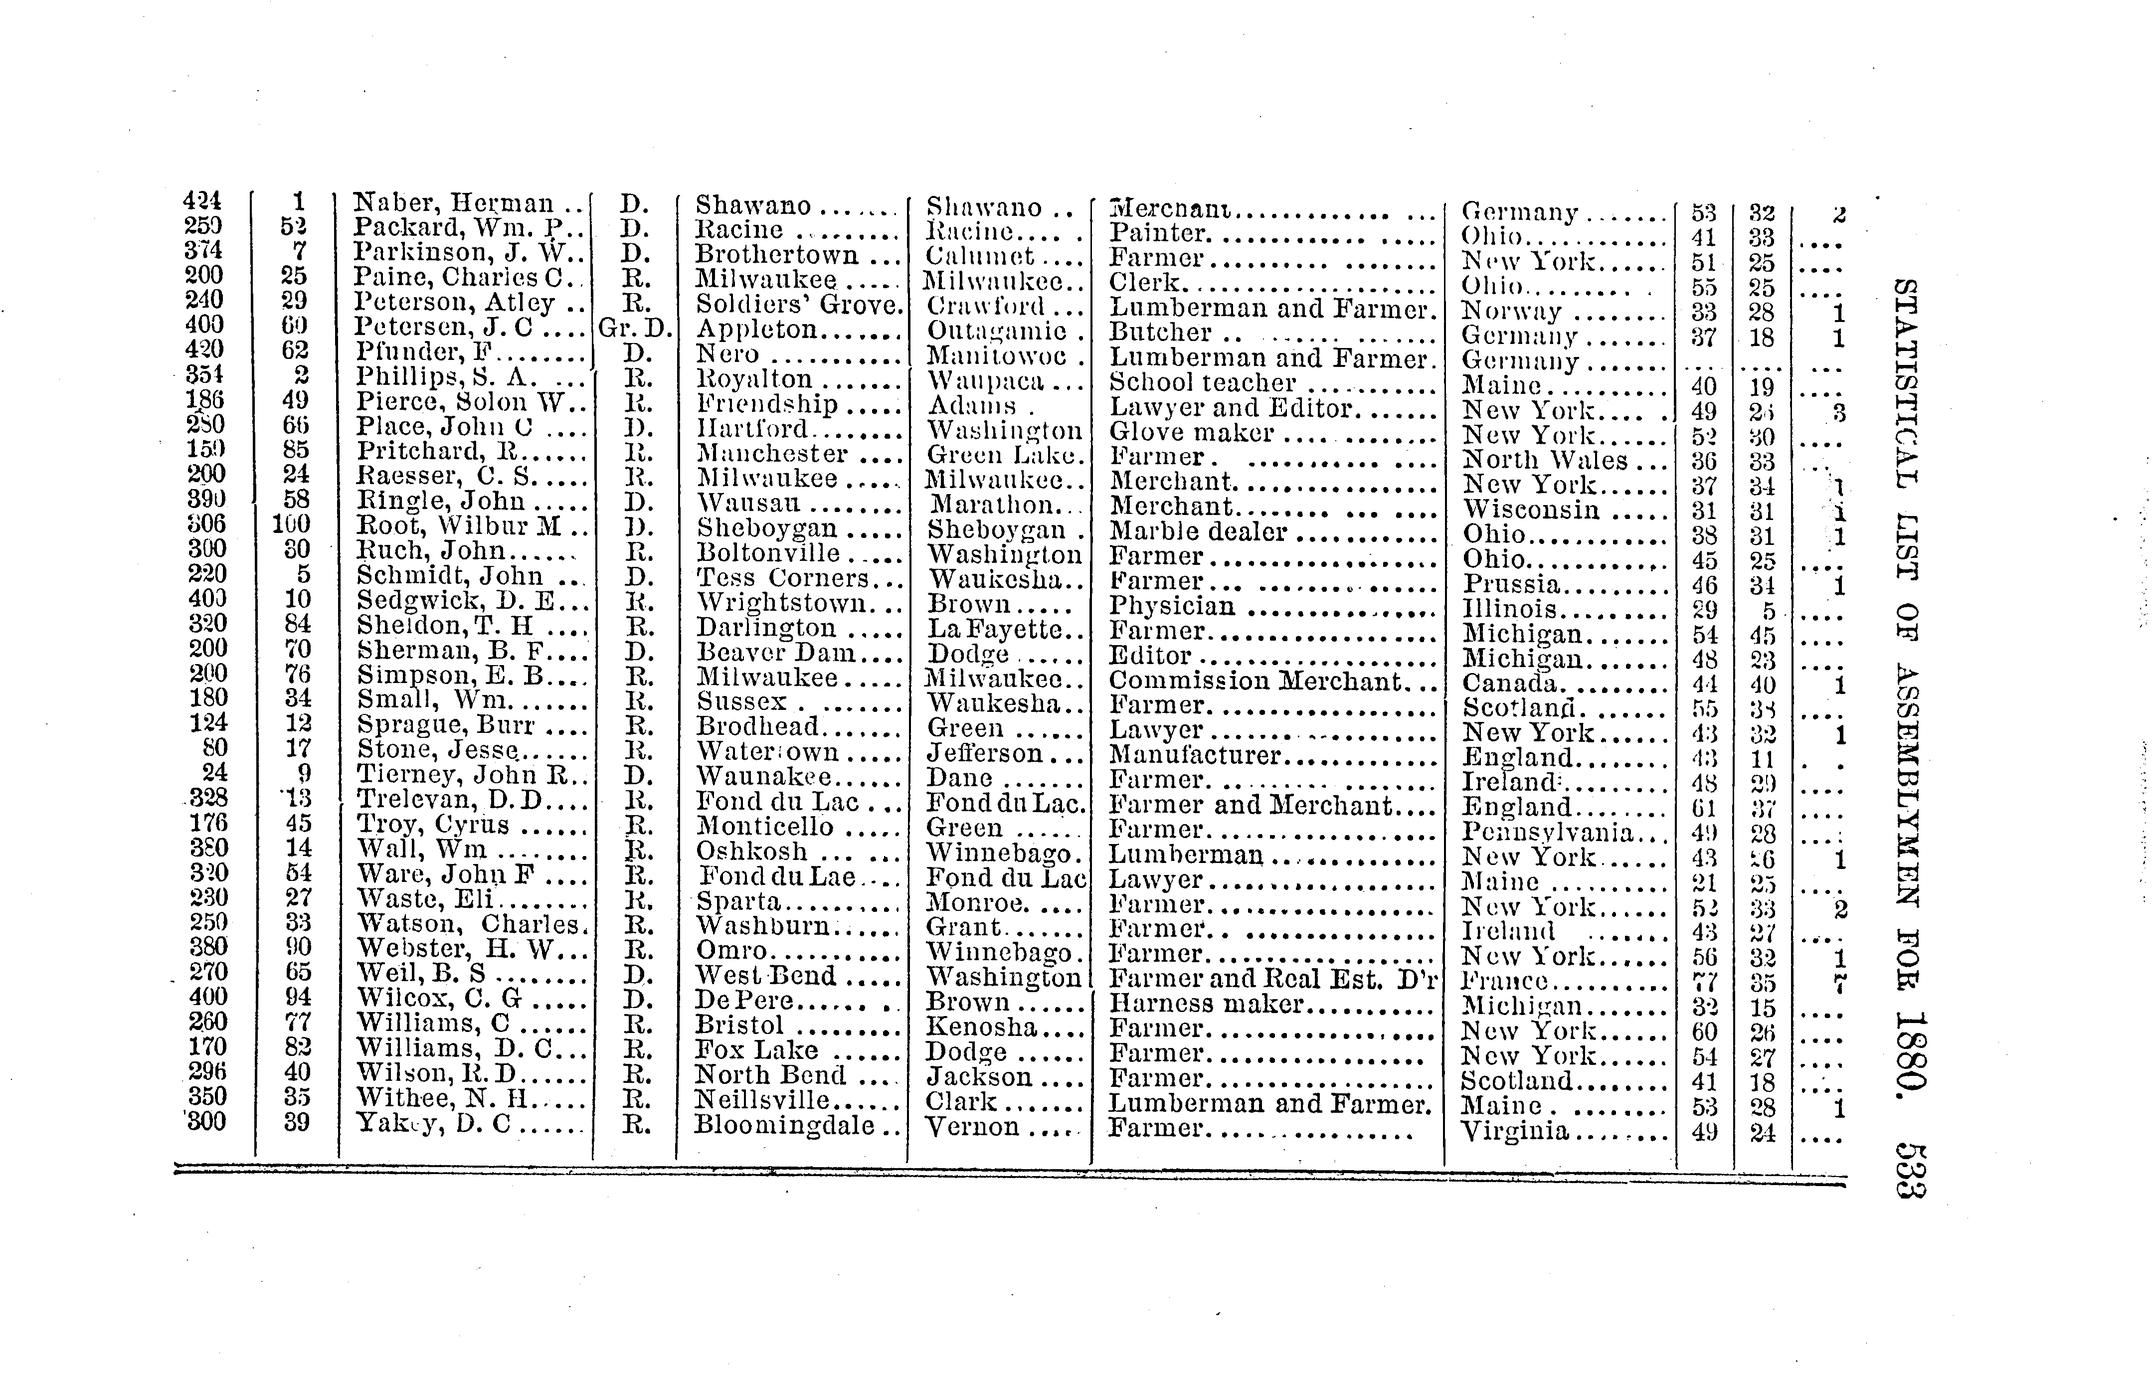 424 1 Naber, Herman .. D. Shawano ....... Shawano .. Merchant............. ... Germany ....... 53 32 2
250 52 Packard, Wm. P.. D. Racine ......... Racine.... . Painter. ............ ..... Ohio............ 41 33 ....
374 7 Parkinson, J. W.. D. Brothertown ... Calumet .... Farmer .......... ........ New York...... 51 25 ....
200 25 Paine, Charles C.. R. Milwaukee ..... Milwaukee.. Clerk...................... Ohio......... . 55 25 ....
240 29 Peterson, Atley .. R. Soldiers' Grove. Crawford ... Lumberman and Farmer. Norway ........ 33 28 1
400 60 Petersen, J. C .... Gr. D. Appleton....... Outagamie . Butcher .. ....... ....... Germany ....... 37 18 1
420 62 Pfunder, F........ D. Nero ........... Manitowoc . Lumberman and Farmer. Germany ....... ... .... ...
354 2 Phillips, S. A. ... R. Royalton ....... Waupaca ... School teacher ........... Maine.......... 40 19 ....
186 49 Pierce, Solon W.. R. Friendship ..... Adams . Lawyer and Editor....... New York.... . 49 3
280 66 Place, John C .... D. Hartford........ Washington Glove maker .... ......... New York...... 52 30 ....
150 85 Pritchard, R...... R. Manchester .... Green Lake. Farmer. ........... .... North Wales ... 36 33 ...
200 24 Raesser, C. S..... R. Milwaukee ..... Milwaukee.. Merchant................. New York...... 37 34 1
390 58 Ringle, John ..... D. Wausau ........ Marathon... Merchant........ ... .... Wisconsin ..... 31 31 1
306 100 Root, Wilbur M .. D. Sheboygan ..... Sheboygan . Marble dealer ............ Ohio............ 38 31 1
300 30 Ruch, John...... R. Boltonville ..... Washington Farmer................... Ohio............ 45 25 ....
220 5 Schmidt, John ... D. Tess Corners... Waukesha.. Farmer ... ............... Prussia......... 46 34 1
400 10 Sedgwick, D. E... R. Wrightstown. .. Brown ..... Physician ............... Illinois......... 29 5 ....
320 84 Sheldon, T. H .... R. Darlington ..... La Fayette.. Farmer................... Michigan....... 54 45 ....
200 70 Sherman, B. F.... D. Beaver Dam.... Dodge ...... Editor ................... Michigan....... 48 23 ....
200 76 Simpson, E. B.... R. Milwaukee ..... Milwaukee.. Commission Merchant... Canada. ........ 44 40 1
180 34 Small, Wm....... R. Sussex . ....... Waukesha.. Farmer................... Scotland. ...... 55 38 ....
124 12 Sprague, Burr .... R. Brodhead....... Green ...... Lawyer .................. New York...... 43 32 1
80 17 Stone, Jesse...... R. Watertown ..... Jefferson ... Manufacturer............ England........ 43 11 . .
24 9 Tierney, John R.. D. Waunakee...... Dane ....... Farmer. .. .............. Ireland........ 48 29 ....
328 13 Trelevan, D. D.... R. Fond du Lac ... Fond du Lac. Farmer and Merchant.... England........ 61 37 ....
176 45 Troy, Cyrus ...... R. Monticello ..... Green ...... Farmer................... Pennsylvania... 49 28 ....
380 14 Wall, Wm ........ R. Oshkosh ... ... Winnebago. Lumberman .............. New York...... 43 26 1
320 54 Ware, John F .... R. Fond du Lae.... Fond du Lac Lawyer................... Maine .......... 21 25 ....
230 27 Waste, Eli........ R. Sparta.......... Monroe. .... Farmer................... New York...... 52 33 2
250 33 Watson, Charles. R. Washburn...... Grant....... Farmer.. ................ Ireland ....... 43 27 ....
380 90 Webster, H. W... R. Omro........... Winnebago. Farmer................... New York...... 56 32 1
270 65 Weil, B. S ........ D. West Bend ..... Washington Farmer and Real Est. D'r France.......... 77 35 7
400 94 Wilcox, C. G ..... D. De Pere....... . Brown ...... Harness maker........... Michigan....... 32 15 ....
260 77 Williams, C ...... R. Bristol ......... Kenosha.... Farmer................... New York...... 60 26 ....
170 82 Williams, D. C... R. Fox Lake ...... Dodge ...... Farmer.................. New York...... 54 27 ....
296 40 Wilson, R. D...... R. North Bend .... Jackson .... Farmer................... Scotland........ 41 18 ....
350 35 Withee, N. H..... R. Neillsville...... Clark ....... Lumberman and Farmer. Maine . ........ 53 28 1
300 39 Yakey, D. C ...... R. Bloomingdale .. Vernon ..... Farmer................. Virginia........ 49 24 ....
STATISTICAL LIST OF ASSEMBLYMEN FOR 1880. 533